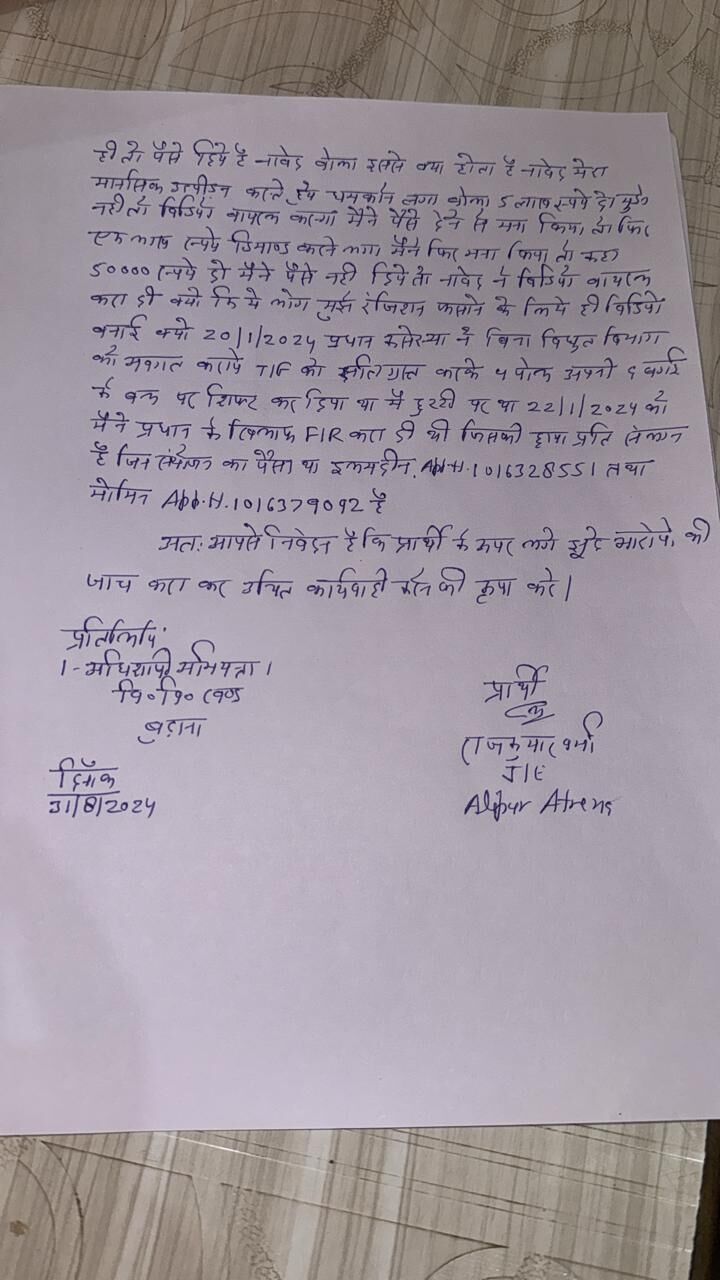 ही तो पैसे दिये है नावेद बोला इससे क्या होता है नावेद मेरा
मानसिक उत्पीड़न करते हुये धमकाने लगा बोला 5 लाख रूपये दे मुझे
नही तो विडियो वायरल करूगा मैने पैसे देने से मना किया, तो फिर
एक लाख रूपये डिमाण्ड करने लगा मैने फिर मना किया तो कहा
50000 रूपये दो मैने पैसे नही दिये तो नावेद ने विडियो वायरल
करा दी क्यो कि ये लोग मुझे रंजिशन फसाने के लिये ही विडियो
बनाई क्यो 20/1/2024 प्रधान कसेरवा ने बिना विधुत विभाग
को अवगत कराये T/F को क्षतिग्रस्त करके 4 पोल अपनी दबगई
के बल पर शिफ्ट कर दिया था मै छुटटी पर था 22/1/2024 को
मैने प्रधान के खिलाफ FIR करा दी थी जिसकी छाया प्रति संलग्न
है जिन संयोजन का पैसा था इलमदीन. App.N.1016328551 तथा
मोमिन App.N.1016379092 है
अत: आपसे निवेदन है कि प्रार्थी के ऊपर लगे झूठे आरोपो की
जाच करा कर उचित कार्यवाही करने की कृपा करे |
प्रतिलिपि
1- अधिशासी अभियन्ता।
वि०वि० खण्ड
बुढ़ाना
प्रार्थी
राजकुमार वर्मा
J/E
Alipur Atrena
दिनाँक
31/8/2024